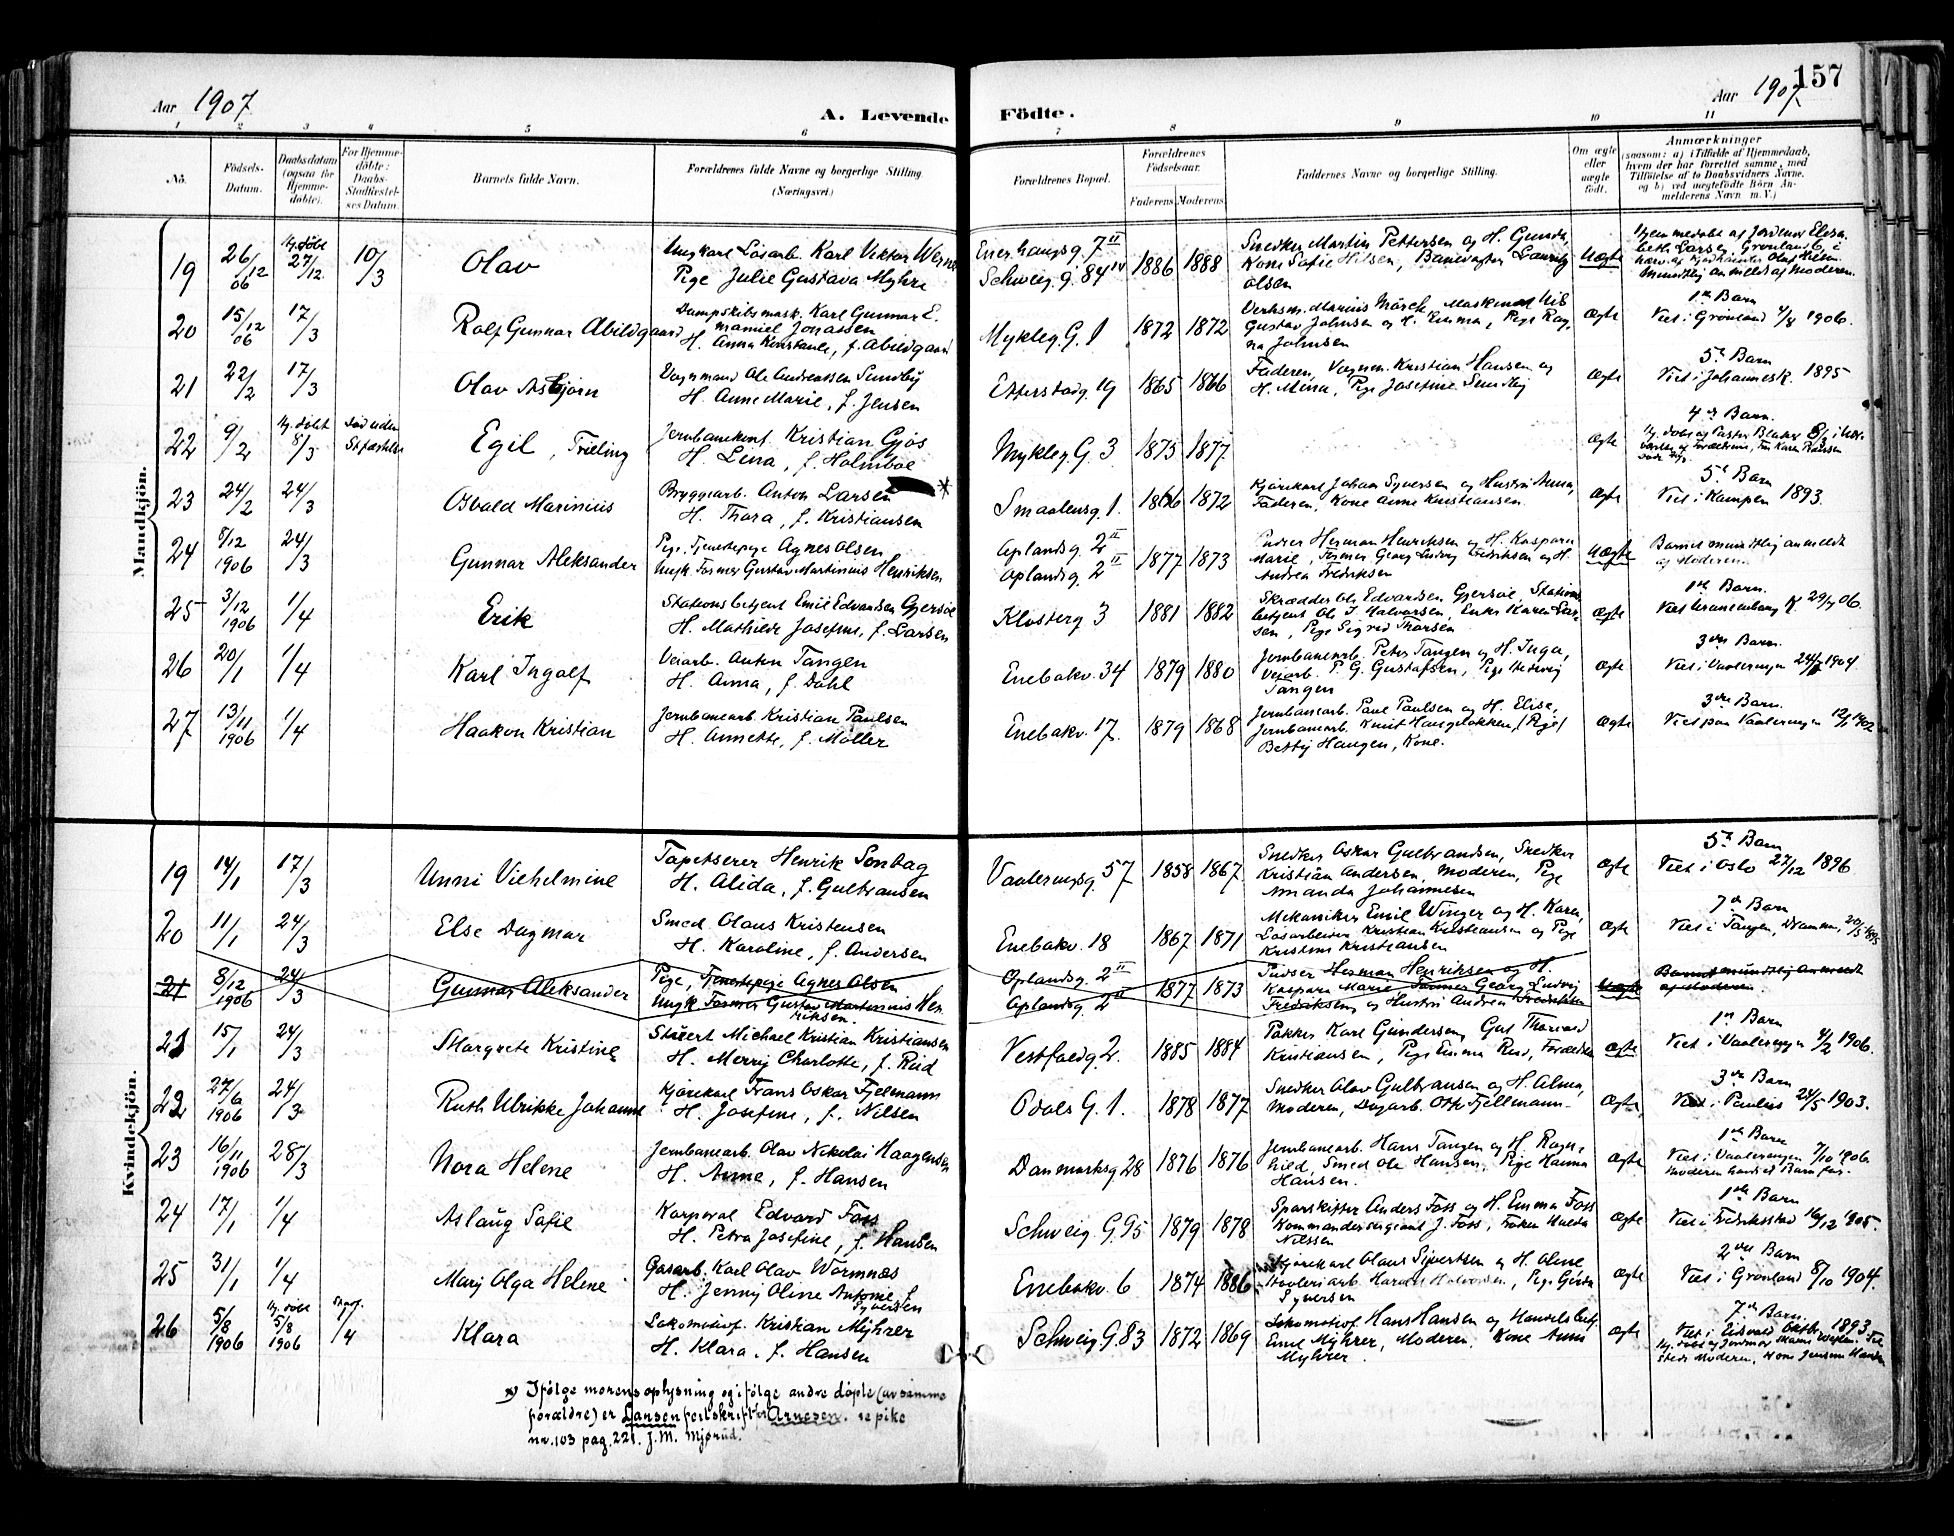 157
Aar 1907
A. Levende
Födte.
Aar 1907
1 2 3 4 5 6 7 8 9 10 11
No.
Födsels-Datum.
Daabsdatum (ogsaa for Hjemme-döbte).
For Hjemme-döbte: Daabs-Stadfæstel-ses Datum.
Barnets fulde Navn.
Forældrenes fulde Navne og borgerlige Stilling.
(Næringsvei)
Forældrenes Bopæl.
Forældrenes Födselsaar.
Faderens. Moderens.
Faddernes Navne og borgerlige Stilling.
Om ægte eller uægte födt.
Anmærkninger
(saasom: a) i Tilfælde af Hjemmedaab,
hvem der har forrettet samme, med
Tilföielse af to Daabsvidners Navne,
og b) ved uægtefödte Börn An-
melderens Navn m. V.)
Mandkjön.
19 26/12 06 Hj. döbt 27/12 10/3 Olav
Ungkarl Løsarb. Karl Viktor Werne
Pige Julie Gustava Myhre
Enerhaugsg. 7 II
Schweig. G. 84 IV
1886 1888
Snedker Martin Pettersen og H. Gunda
Kone Sofie Nilsen, Banevogter Lauritz
Olsen
Uægte
Mundtlig anmeldt af Moderen.
20 15/12 06 17/3 Rolf Gunnar Abildgaard
Dampskibsmask. Karl Gunnar E.
manuel Jonassen
H. Anna Konstance, f. Abildgaard
Mykleg. G. 1 1872 1872
Verksm. Marius Mörch, Maskinist Nils
Gustav Johnsen og H. Emma, Pige Rag,
na Johnsen
Ægte
1ste Barn
Viet i Grønland 4/8 1906.
21 22/2 17/3 Olav Asbjörn
Vognmand Ole Andreassen Sundby
H. Anne Marie, f. Jensen
Etterstadg. 19 1865 1866
Faderen, Vognm. Kristian Hansen og
H. Mina, Pige Josefine Sundby
Ægte
5te Barn
Viet i Johannesk. 1895
22 9/2 Hj. döbt 8/3 Död uden Stfæstelse Egil, Tvilling
Jernbanekont. Kristian Gjøs
H. Lena, f. Holmboe
Mykleg G. 3 1875 1877
Ægte
4de Barn.
23 24/2 24/3 Osvald Marinius
Bryggearb. Anton Larsen *
H. Thora, f. Kristiansen
Smaalensg. 1. 1866 1872
Kjørekarl Johan Syversen og Hustru Anna,
Faderen, Kone Anne Kristiansen.
Ægte
5te Barn
Viet i Kampen 1893.
24 8/12 1906 24/3 Gunnar Aleksander
Pige, Tjenestepige Agnes Olsen
Ungk. Former Gustav Martinius Henriksen
Oplandsg. 2 II
Oplandsg. 2 II
1877 1873
Pudser Herman Henriksen og H. Kaspara
Marie, Former Georg Ludvig Fredriksen og H.
Andrea Fredriksen
Uægte
Barnet mundtlig anmeldt
af Moderen.
25 3/12 1906 1/4 Erik
Stationsbetjent Emil Edvardsen Gjersøe
H. Mathilde Josefine, f. Larsen
Klosterg 3 1881 1882
Skrædder Ole Edvardsen Gjersøe, Stations
betjent Ole J. Halvorsen, Enke Karen Lar-
sen, Pige Sigrid Thorsen
Ægte
1ste Barn.
Viet Uranienborg K. 29/7 06.
26 20/1 1/4 Karl Ingolf
Veiarb. Anton Tangen
H. Anna, f. Dahl
Enebakv. 34 1879 1880
Jernbanearb. Peter Tangen og H. Inga,
Veiarb. P. G. Gustafsen, Pige Hedevig
Tangen
Ægte
3die Barn.
Viet i Vaalerengen 24/1 1904
27 13/11 1906 1/4 Haakon Kristian
Jernbanearb. Kristian Paulsen
H. Annette, f. Møller
Enebakv. 17. 1879 1868
Jernbanearb. Paul Paulsen og H. Elise,
Jernbanearb. Knut Haugeløkken, (Pige)
Betty Haugen, Kone.
Ægte
3die Barn.
Viet paa Vaalerengen 12/1 1902
Kvindekjön.
19 14/1 17/3 Unni Vilhelmine
Tapetserer Henrik Sontag
H. Alida, f. Gulbransen
Vaalerengsg. 57 1858 1867
Snedker Oskar Gulbrandsen, Snedker
Kristian Andersen, Moderen, Pige
Amanda Johannesen
Ægte
5te Barn
Viet i Oslo 27/12 1896
20 11/1 24/3 Else Dagmar
Smed Olaus Kristensen
H. Karoline, f. Andersen
Enebakv. 18 1867 1871
Mekaniker Emil Winger og H. Karen,
Løsarbeider Kristian Kristiansen og Pige
Kristine Kristiansen
Ægte
7de Barn
Viet i Tangen, Drammen, 20/5 1895
21 8/12 1906 24/3 Gunnar Aleksander
Pige, Tjenestepige Agnes Olsen
Ungk. Former Gustav Martinius Hen
riksen.
Oplandsg. 2 II
Oplandsg 2 II
1877 1873
Pudser Herman Henriksen og H.
Kaspara Marie Former Georg Ludvig
Fredriksen og Hustru Andrea Fredriksen
Uægte
Barnet mundtlig anmeldt
af Moderen.
21 15/1 24/3 Margrete Kristine
Stuert Michael Kristian Kristiansen
H. Merry Charlotte, f. Rud
Vestfoldg 2. 1885 1884
Pakker Karl Gundersen, Gut Thorvald
Kristiansen, Pige Emma Rud, Forældrene
ægte
1ste Barn
Viet i Vaalerengen 4/2 1906.
22 27/6 1906 24/3 Ruth Ulrikke Johanne
Kjørekarl Frans Oskar Fjellmann
H. Josefine, f. Nilsen
Odals G. 1. 1878 1877
Snedker Olav Gulbransen og H. Alma,
Moderen, Dagarb. Otto Fjellmann.
Ægte
3die Barn
Viet i Paulus 24/5 1903.
23 16/11 1906 28/3 Nora Helene
Jernbanearb. Olav Nikolai Haagensen
H. Anne, f. Hansen
Danmarksg 28 1876 1876
Jernbanearb. Hans Tangen og H. Ragn,
hild, Smed Ole Hansen, Pige Hanna
Hansen.
Ægte
1ste Barn
Viet i Vaalerengen 7/10 1906
24 17/1 1/4 Aslaug Sofie
Korporal Edvard Foss
H. Petra Josefine, f. Hansen
Schweig. G. 95 1879 1878
Sporskifter Anders Foss og H. Emma Foss
Kommandersergeant J. Foss, Frøken Hulda
Nilssen
Ægte
1ste Barn
Viet i Fredriksstad 16/12 1905
25 31/1 1/4 Mary Olga Helene
Gasarb. Karl Olav Wormnæs
H. Jenny Oline Antonie, f.
Syversen
Enebakv. 6 1874 1886
Kjørekarl Olaus Sivertsen og H. Oline
Høvleriarb. Harald Halvorsen, Pige Gina
Syversen
Ægte
2den Barn
Viet i Grønland 8/10 1904.
26 5/8 1906 Hj. döbt 5/8 1906 Stadf. 1/4 Klara
Lokomotivf. Kristian Myhrer
H. Klara, f. Hansen
Schweig G. 83 1872 1869
Lokomotivf. Hans Hansen og Handelsbetj.
Emil Myhrer, Moderen, Kone Anna
Myhrer.
ægte
7de Barn.
Viet i Eidsvold Oktbr. 1893
*) Ifølge morens oplysning og ifølge andre døpte (av samme
forældre) er Larsen feilskrift for Arnesen. se pike
nr. 103 pag. 221. J. M. Mjørud.